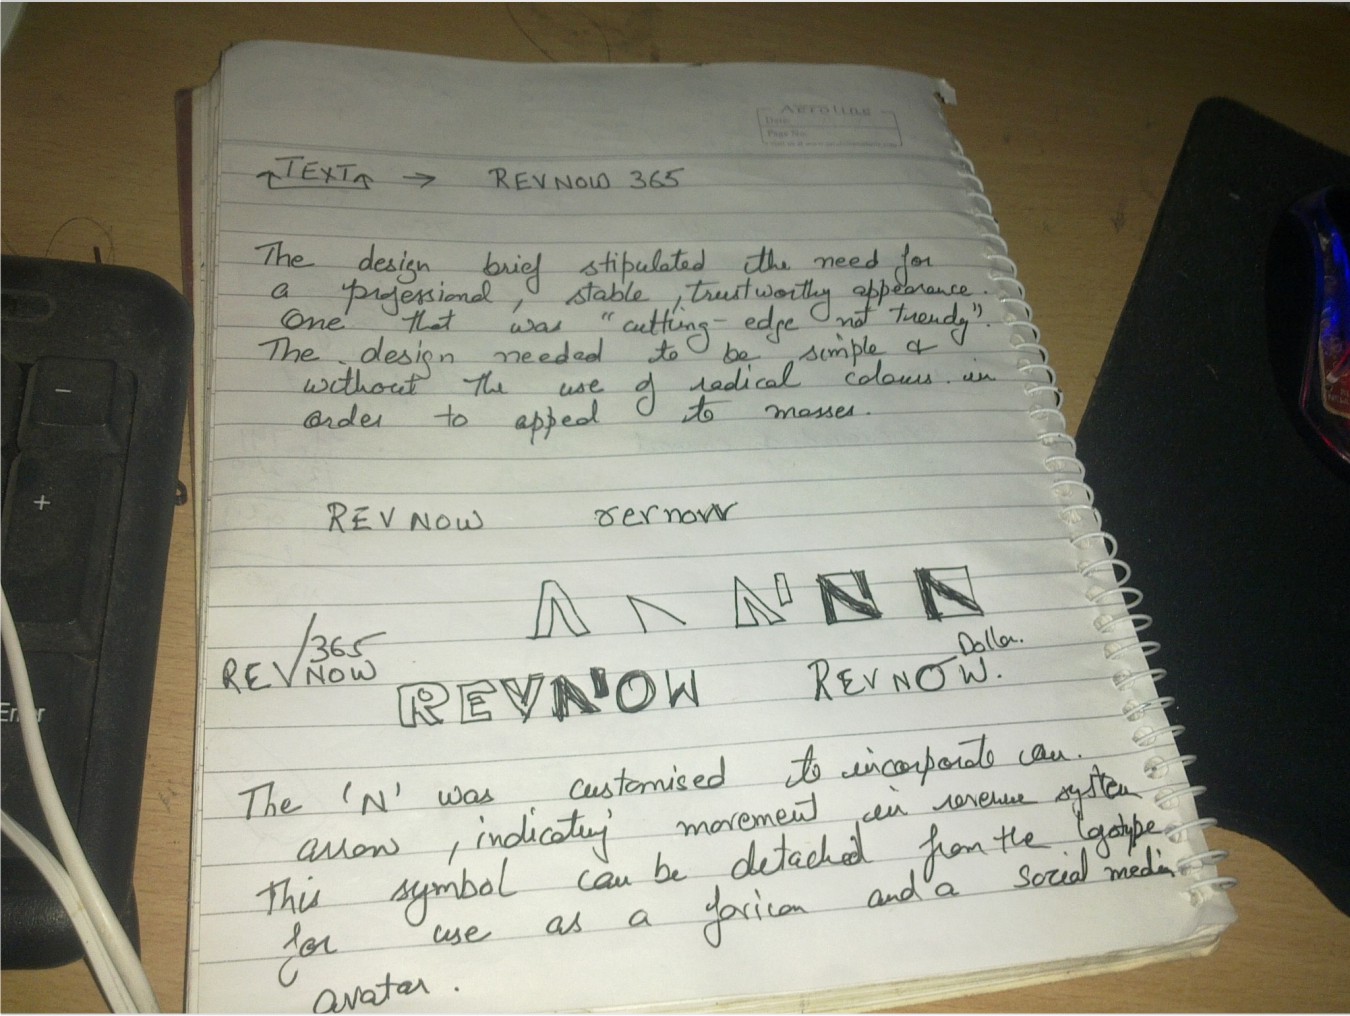 Aeroline
Date
Page No.
TEXT → REVNOW 365
The design brief stipulated the need for
a professional, stable, trustworthy appearance.
One that was "cutting-edge not trendy".
The design needed to be simple &
without the use of radical colours in
order to appeal to masses.
REVNOW revnow
N N
REV/365
NOW
REVNOW REVNOW.
Dollar.
The 'N' was customised to incorporate an
arrow, indicating movement in revenue system
This symbol can be detached from the logotype
for use as a favicon and a social media
avatar.
-
+
Enter